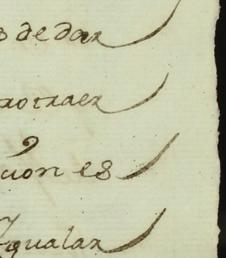 o de dar
rotraer
uon es
Yqualar